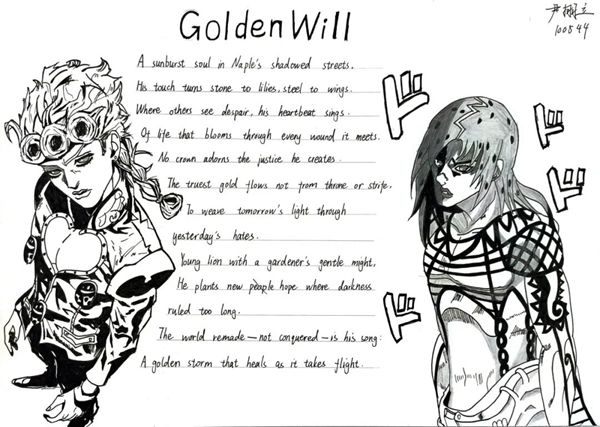 Golden Will
尹翊立
100844
A sunburst soul in Naple's shadowed streets.
His touch turns stone to lilies, steel to wings.
Where others see despair, his heartbeat sings.
Of life that blooms through every wound it meets.
No crown adorns the justice he creates.
The truest gold flows not from throne or strife.
To weave tomorrow's light through
yesterday's hates.
Young lion with a gardener's gentle might,
He plants new people hope where darkness
ruled too long.
The world remade—not conquered—is his song:
A golden storm that heals as it takes flight.
ド
ド
ド
ド